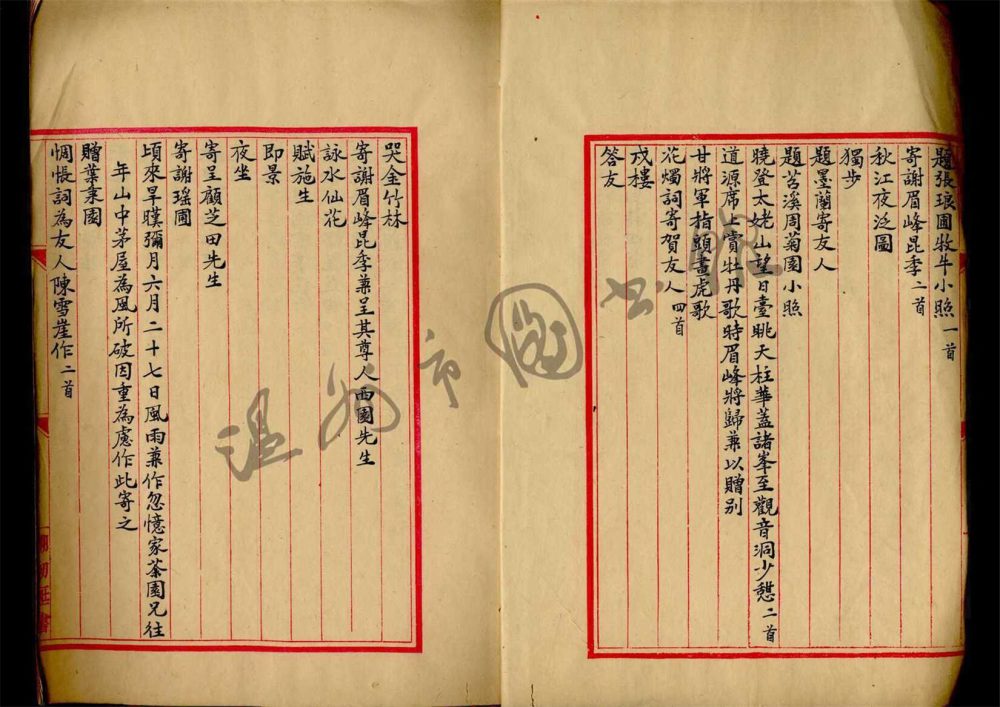 題張琅圃牧牛小照一首
寄謝眉峰昆季二首
秋江夜泛圖
獨步
題墨蘭寄友人
題苕溪周菊園小照
曉登太姥山望日臺眺天柱華蓋諸峯至觀音洞少憇二首
道源席上賞牡丹歌時眉峰將歸兼以贈别
甘將軍指頭畫虎歌
花燭詞寄賀友人四首
戍樓
答友
哭金竹林
寄謝眉峰昆季兼呈其尊人西園先生
詠水仙花
賦施生
即景
夜坐
寄呈顧芝田先生
寄謝瑤圃
頃來旱暵彌月六月二十七日風雨兼作忽憶家荼園兄往
年山中茅屋為風所破因重為慮作此寄之
贈葉秉園
惆悵詞為友人陳雪崖作二首
溫州市圖書館